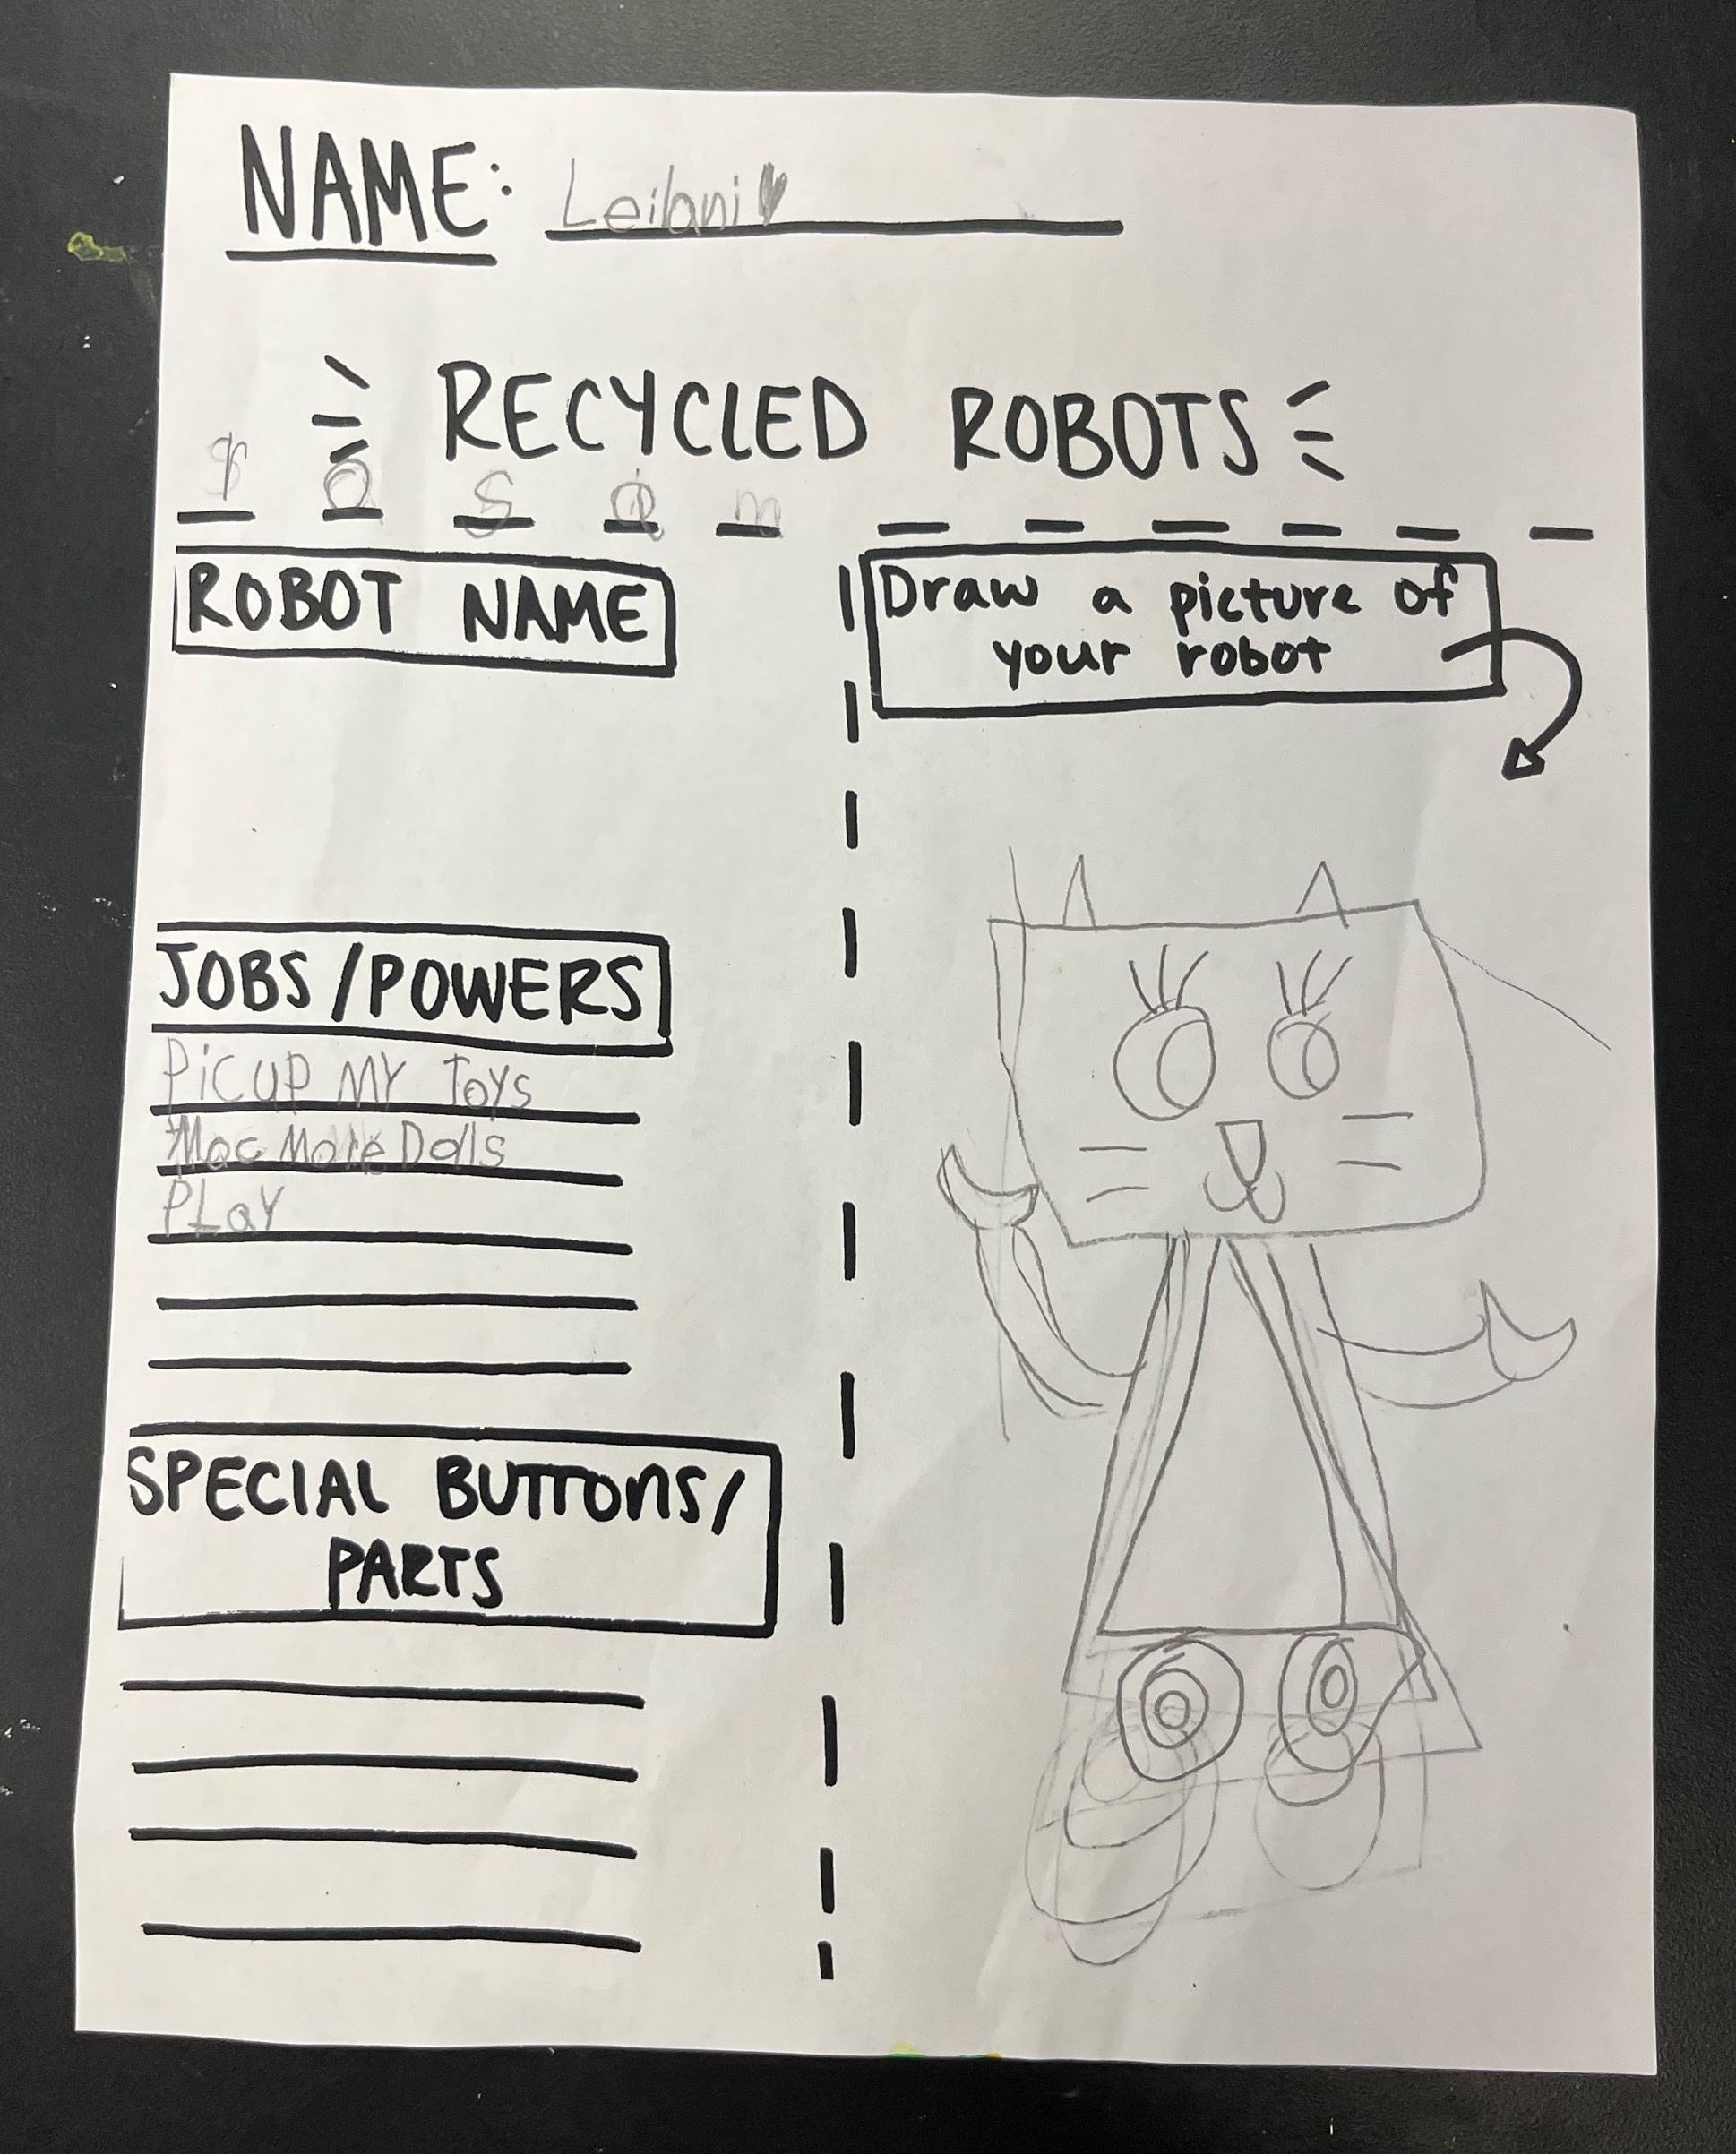 NAME: Leilani
RECYCLED ROBOTS
S m
ROBOT NAME
Draw a picture of
your robot
JOBS/POWERS
Pic up MY Toys
Mac More Dolls
PLay
SPECIAL BUTTONS/
PARTS